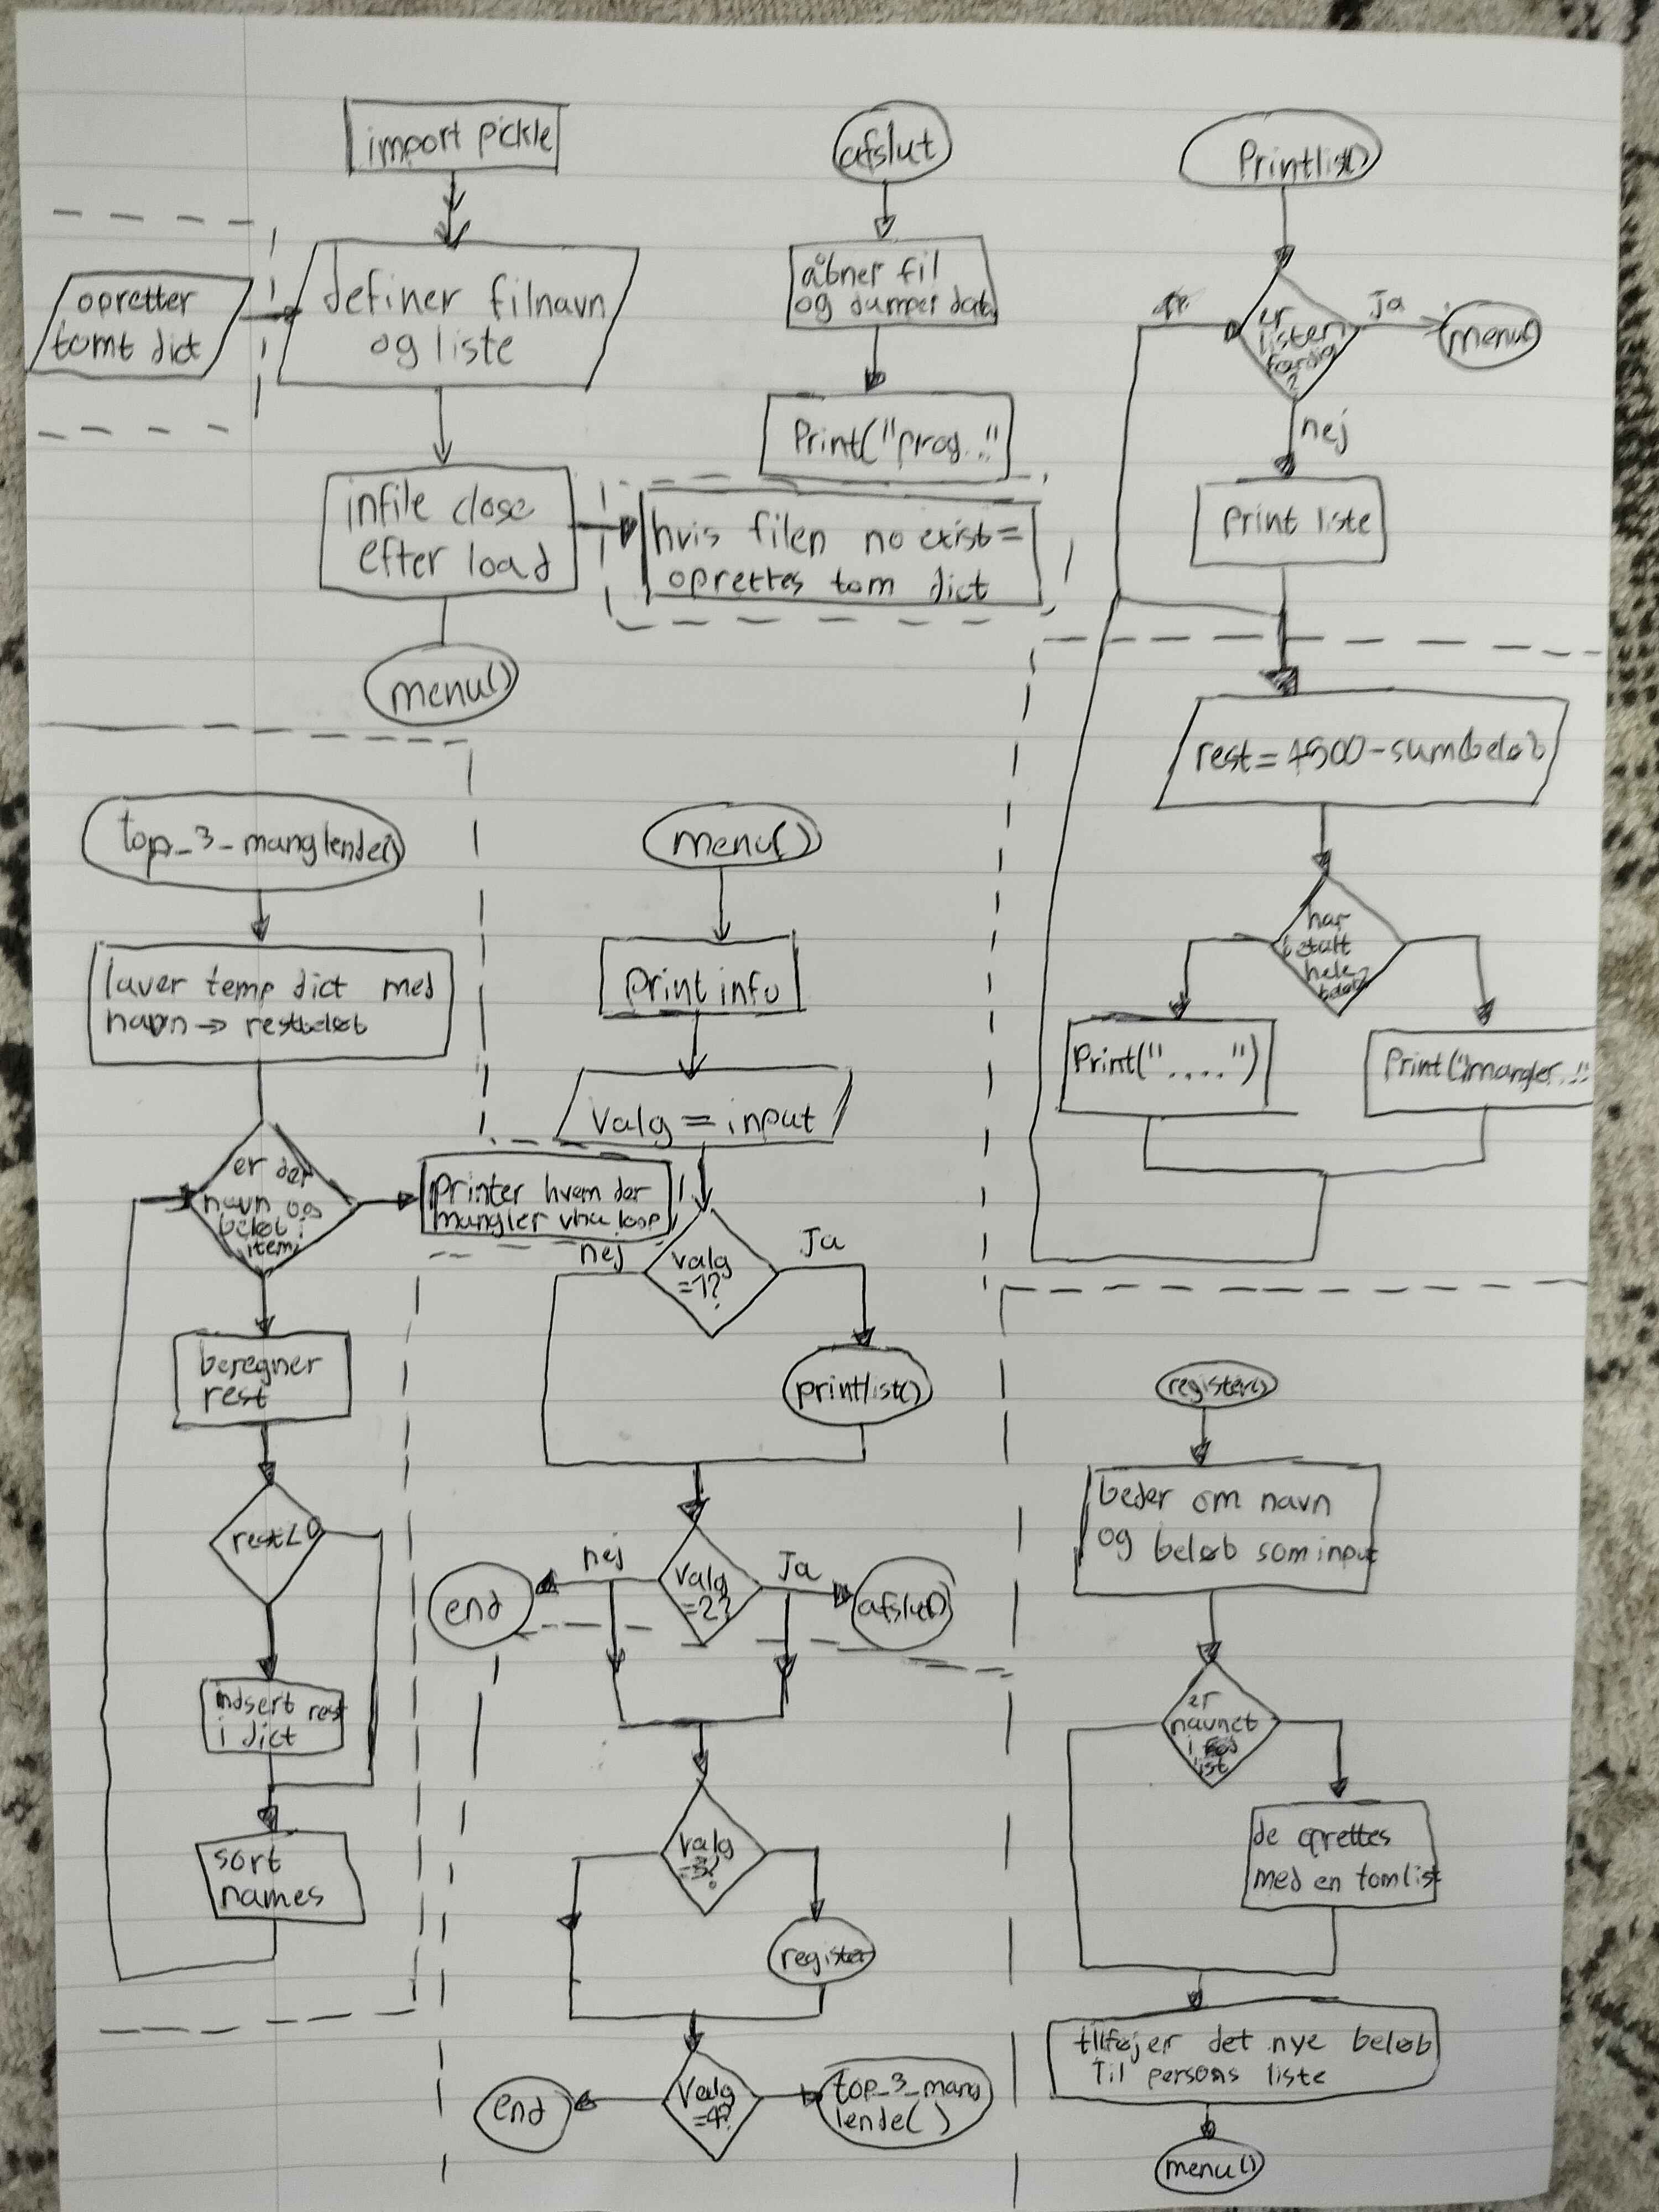 import pickle
opretter
tomt dict
definer filnavn
og liste
infile close
efter load
hvis filen no exist =
oprettes tom dict
menu()
afslut
åbner fil
og dumper data
Print("prog..."
Printlist()
er
listen
færdig
?
Ja
menu()
nej
print liste
rest = 4500-sum(beløb
har
betalt
hele
beløb?
Print("....")
Print("mangler..."
top_3_manglende()
laver temp dict med
navn → restbeløb
er der
navn og
beløb i
item
printer hvem der
mangler vha loop
beregner
rest
rest<0
indsert rest
i dict
sort
names
menu()
print info
Valg = input
valg
=1?
nej
Ja
printlist()
Valg
=2?
nej
Ja
end
afslut()
Valg
=3?
register
Valg
=4?
end
top_3_mang
lende()
register()
beder om navn
og beløb som input
er
navnet
i
list
de oprettes
med en tom list
tilføjer det nye beløb
Til persons liste
menu()